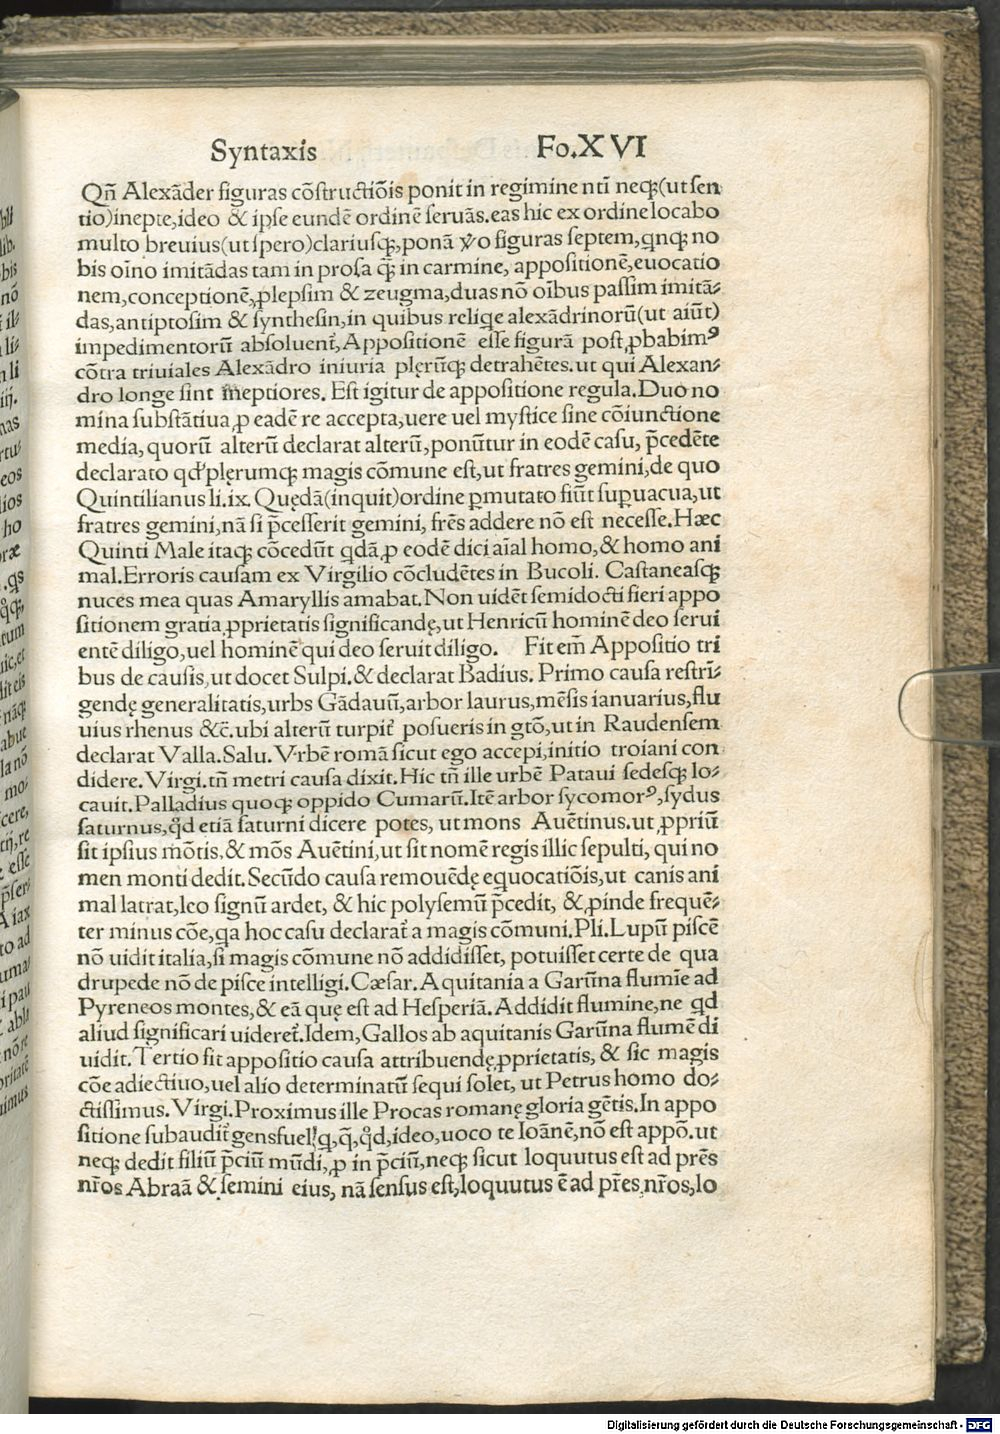 Syntaxis Fo.XVI
Qñ Alexãder figuras cõſtructiõis ponit in regimine nti neqꝫ(ut ſen
tio)inepte,ideo & ipſe eundẽ ordinẽ ſeruãs.eas hic ex ordine locabo
multo breuius(ut ſpero)clariuſqꝫ,ponã ꝟo figuras ſeptem,qnqꝫ no
bis oĩno imitãdas tam in proſa q̃ꝫ in carmine, appoſitionẽ,euocatio
nem,conceptionẽ,ꝓlepſim & zeugma,duas nõ oĩbus paſſim imitã⸗
das,antiptoſim & ſyntheſin,in quibus reliqe alexãdrinorũ(ut aiũt)
impedimentorũ abſoluent᷑,Appoſitionẽ eſſe figurã poſt ꝓbabimꝰ
cõtra triuiales Alexãdro iniuria plęrũqꝫ detrahẽtes.ut qui Alexan⸗
dro longe ſint ineptiores. Eſt igitur de appoſitione regula.Duo no
mina ſubſtãtiua,ꝓ eadẽ re accepta,uere uel myſtice ſine cõiunctione
media, quorũ alterũ declarat alterũ,ponũtur in eodẽ caſu, p̃cedẽte
declarato qđ plęrumqꝫ magis cõmune eſt,ut fratres gemini,de quo
Quintilianus li.ix. Quędã(inquit)ordine ꝑmutato fiũt ſuꝑuacua,ut
fratres gemini,nã ſi p̃ceſſerit gemini, fr̃es addere nõ eſt neceſſe.Hæc
Quinti Male itaqꝫ cõcedũt qdã ꝓ eodẽ dici aĩal homo,& homo ani
mal.Erroris cauſam ex Virgilio cõcludẽtes in Bucoli. Caſtaneaſqꝫ
nuces mea quas Amaryllis amabat.Non uidẽt ſemidocti fieri appo
ſitionem gratia ꝓprietatis ſignificandę,ut Henricũ hominẽ deo ſerui
entẽ diligo,uel hominẽ qui deo ſeruit diligo. Fit em̃ Appoſitio tri
bus de cauſis,ut docet Sulpi.& declarat Badius. Primo cauſa reſtri⸗
gendę generalitatis,urbs Gãdauũ,arbor laurus,mẽſis ianuarius,flu
uius rhenus &c̃.ubi alterũ turpit᷑ poſueris in gtõ,ut in Raudenſem
declarat Valla.Salu. Vrbẽ romã ſicut ego accepi,initio troiani con
didere.Virgi.tñ metri cauſa dixit.Hic tñ ille urbẽ Pataui ſedeſqꝫ lo⸗
cauit.Palladius quoqꝫ oppido Cumarũ.Itẽ arbor ſycomorꝰ,ſydus
ſaturnus,qđ etiã ſaturni dicere potes, ut mons Auẽtinus.ut ꝓpriũ
ſit ipſius mõtis,& mõs Auẽtini,ut ſit nomẽ regis illic ſepulti, qui no
men monti dedit.Secũdo cauſa remouẽdę equocatiõis,ut canis ani
mal latrat,leo ſignũ ardet, & hic polyſemũ p̃cedit, & ꝓinde frequẽ⸗
ter minus cõe,qa hoc caſu declarat᷑ a magis cõmuni.Pli.Lupũ piſcẽ
nõ uidit italia,ſi magis cõmune nõ addidiſſet, potuiſſet certe de qua
drupede nõ de piſce intelligi.Cæſar.Aquitania a Garũna flumĩe ad
Pyreneos montes,& eã quę eſt ad Heſperiã.Addidit flumine,ne qd
aliud ſignificari uideret᷑.Idem,Gallos ab aquitanis Garũna flumẽ di
uidit.Tertio fit appoſitio cauſa attribuendę ꝓprietatis, & ſic magis
cõe adiectiuo,uel alio determinatũ ſequi ſolet, ut Petrus homo do⸗
ctiſſimus. Virgi.Proximus ille Procas romanę gloria gẽtis.In appo
ſitione ſubaudit᷑ ens q,q̃,qđ,ideo,uoco te Ioãnẽ,nõ eſt appõ.ut
neqꝫ dedit filiũ p̃ciũ mũdi,ꝓ in p̃ciũ,neqꝫ ſicut loquutus eſt ad pr̃es
nr̃os Abraã & ſemini eius, nã ſenſus eſt,loquutus ẽ ad pr̃es nr̃os,lo
Digitalisierung gefördert durch die Deutsche Forschungsgemeinschaft - DFG